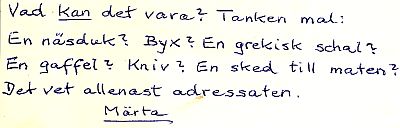 Vad kan det vara? Tanken mal:
En näsduk? Byx? En grekisk schal?
En gaffel? Kniv? En sked till maten?
Det vet allenast adressaten.
Märta